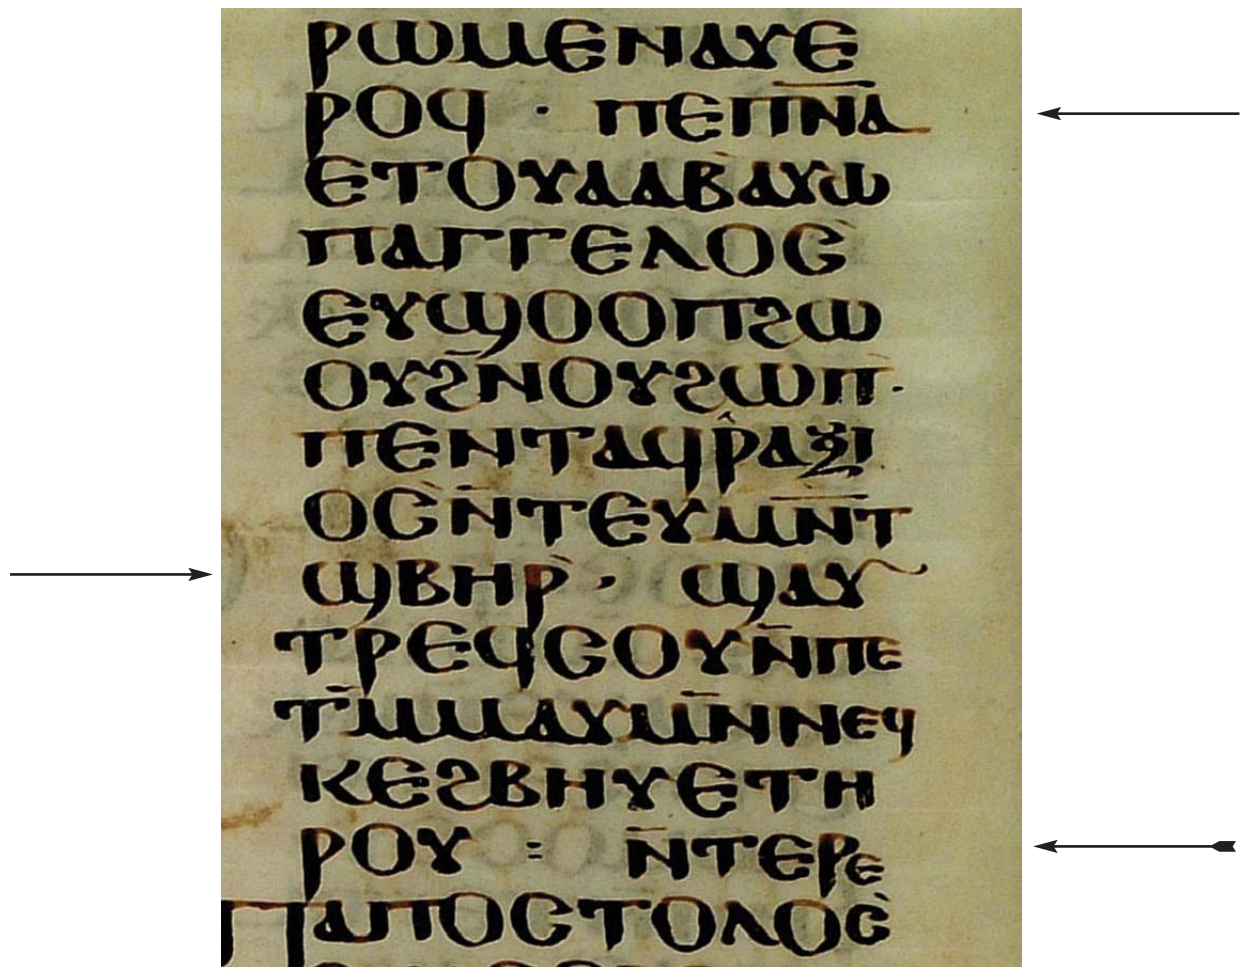 ⲣⲱⲙⲉⲛⲁⲩⲉ
ⲣⲟϥ · ⲡⲉⲡⲛ̅ⲁ̅
ⲉⲧⲟⲩⲁⲁⲃⲁⲩⲱ
ⲡⲁⲅⲅⲉⲗⲟⲥ
ⲉⲩϣⲟⲟⲡϩⲱ
ⲟⲩϩⲛ̅ⲟⲩϩⲱⲡ·
ⲡⲉⲛⲧⲁϥⲣ̂ⲁⲝⲓ
ⲟⲥⲛ̅ⲧⲉⲩⲙⲛ̅ⲧ
ϣⲃⲏⲣ · ϣⲁⲩ
ⲧⲣⲉϥⲥⲟⲩⲛ̅ⲡⲉ
ⲧⲙ̅ⲙⲁⲩⲙⲛ̅ⲛⲉϥ
ⲕⲉϩⲃⲏⲩⲉⲧⲏ
ⲣⲟⲩ : ⲛ̅ⲧⲉⲣⲉ
ⲡⲁⲡⲟⲥⲧⲟⲗⲟⲥ